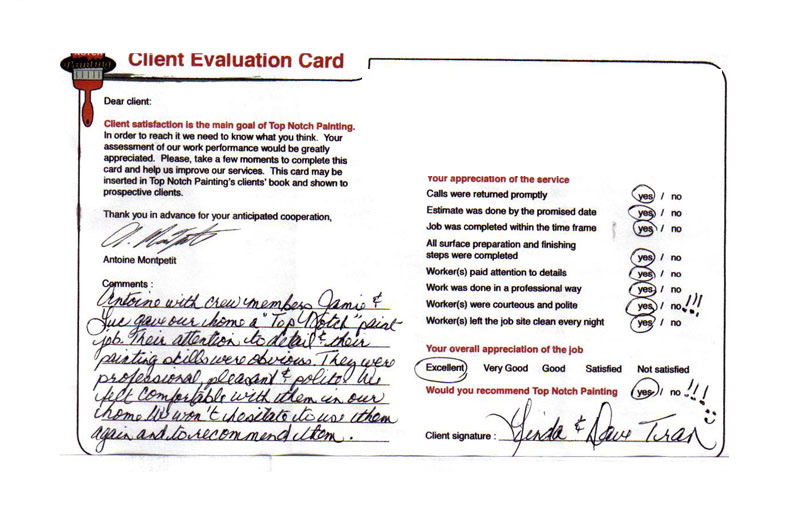 Client Evaluation Card
Painting
Dear client:
Client satisfaction is the main goal of Top Notch Painting.
In order to reach it we need to know what you think. Your
assessment of our work performance would be greatly
appreciated. Please, take a few moments to complete this
card and help us improve our services. This card may be
inserted in Top Notch Painting's clients' book and shown to
prospective clients.
Thank you in advance for your anticipated cooperation,
A. Montpetit
Antoine Montpetit
Comments :
Antoine with crew members Jamie &
Luc gave our home a "Top Notch" paint
job. Their attention to detail & their
painting skills were obvious. They were
professional, pleasant & polite. We
felt comfortable with them in our
home. We won't hesitate to use them
again and to recommend them.
Your appreciation of the service
Calls were returned promptly yes / no
Estimate was done by the promised date yes / no
Job was completed within the time frame yes / no
All surface preparation and finishing
steps were completed yes / no
Worker(s) paid attention to details yes / no
Work was done in a professional way yes / no
Worker(s) were courteous and polite yes / no !!!
Worker(s) left the job site clean every night yes / no
Your overall appreciation of the job
Excellent Very Good Good Satisfied Not satisfied
Would you recommend Top Notch Painting yes / no !!!
Client signature : Linda & Dave